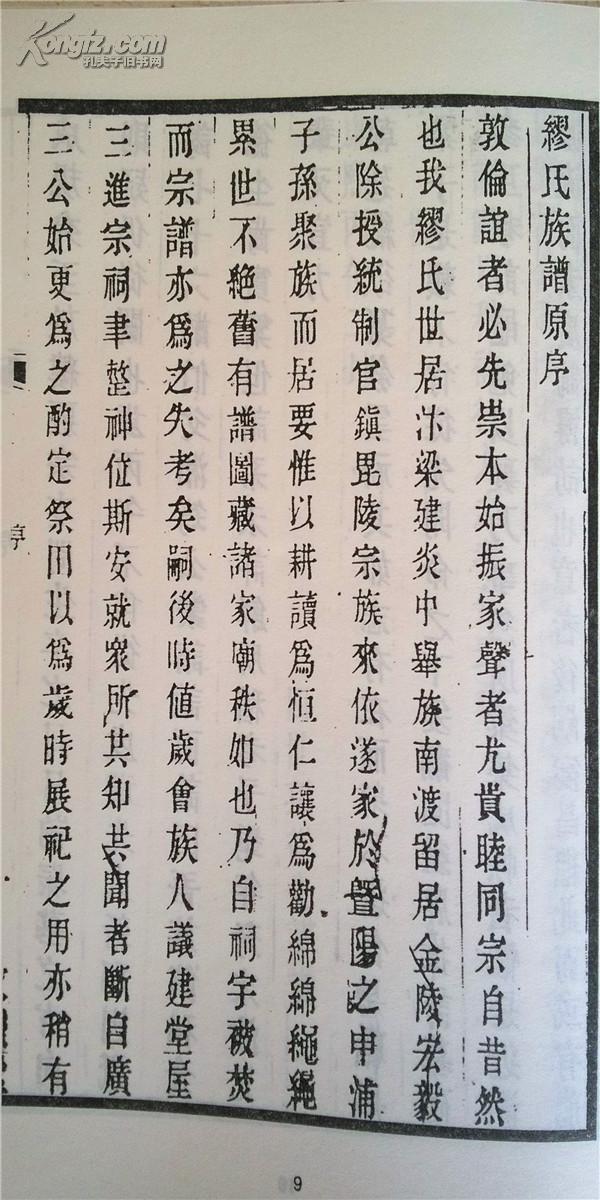 Kongfz.com
孔夫子旧书网
繆氏族譜原序
敦倫誼者必先崇本始振家聲者尤貴睦同宗自昔然
也我繆氏世居汴梁建炎中舉族南渡留居金陵宏毅
公除授統制官鎮毘陵宗族來依遂家於暨陽之申浦
子孫聚族而居要惟以耕讀爲恒仁讓爲勸綿綿繩繩
累世不絕舊有譜圖藏諸家廟秩如也乃自祠宇被焚
而宗譜亦爲之失考矣嗣後時値歲會族人議建堂屋
三進宗祠聿整神位斯安就衆所共知共聞者斷自廣
三公始更爲之酌定祭田以爲歲時展祀之用亦稍有
序
9